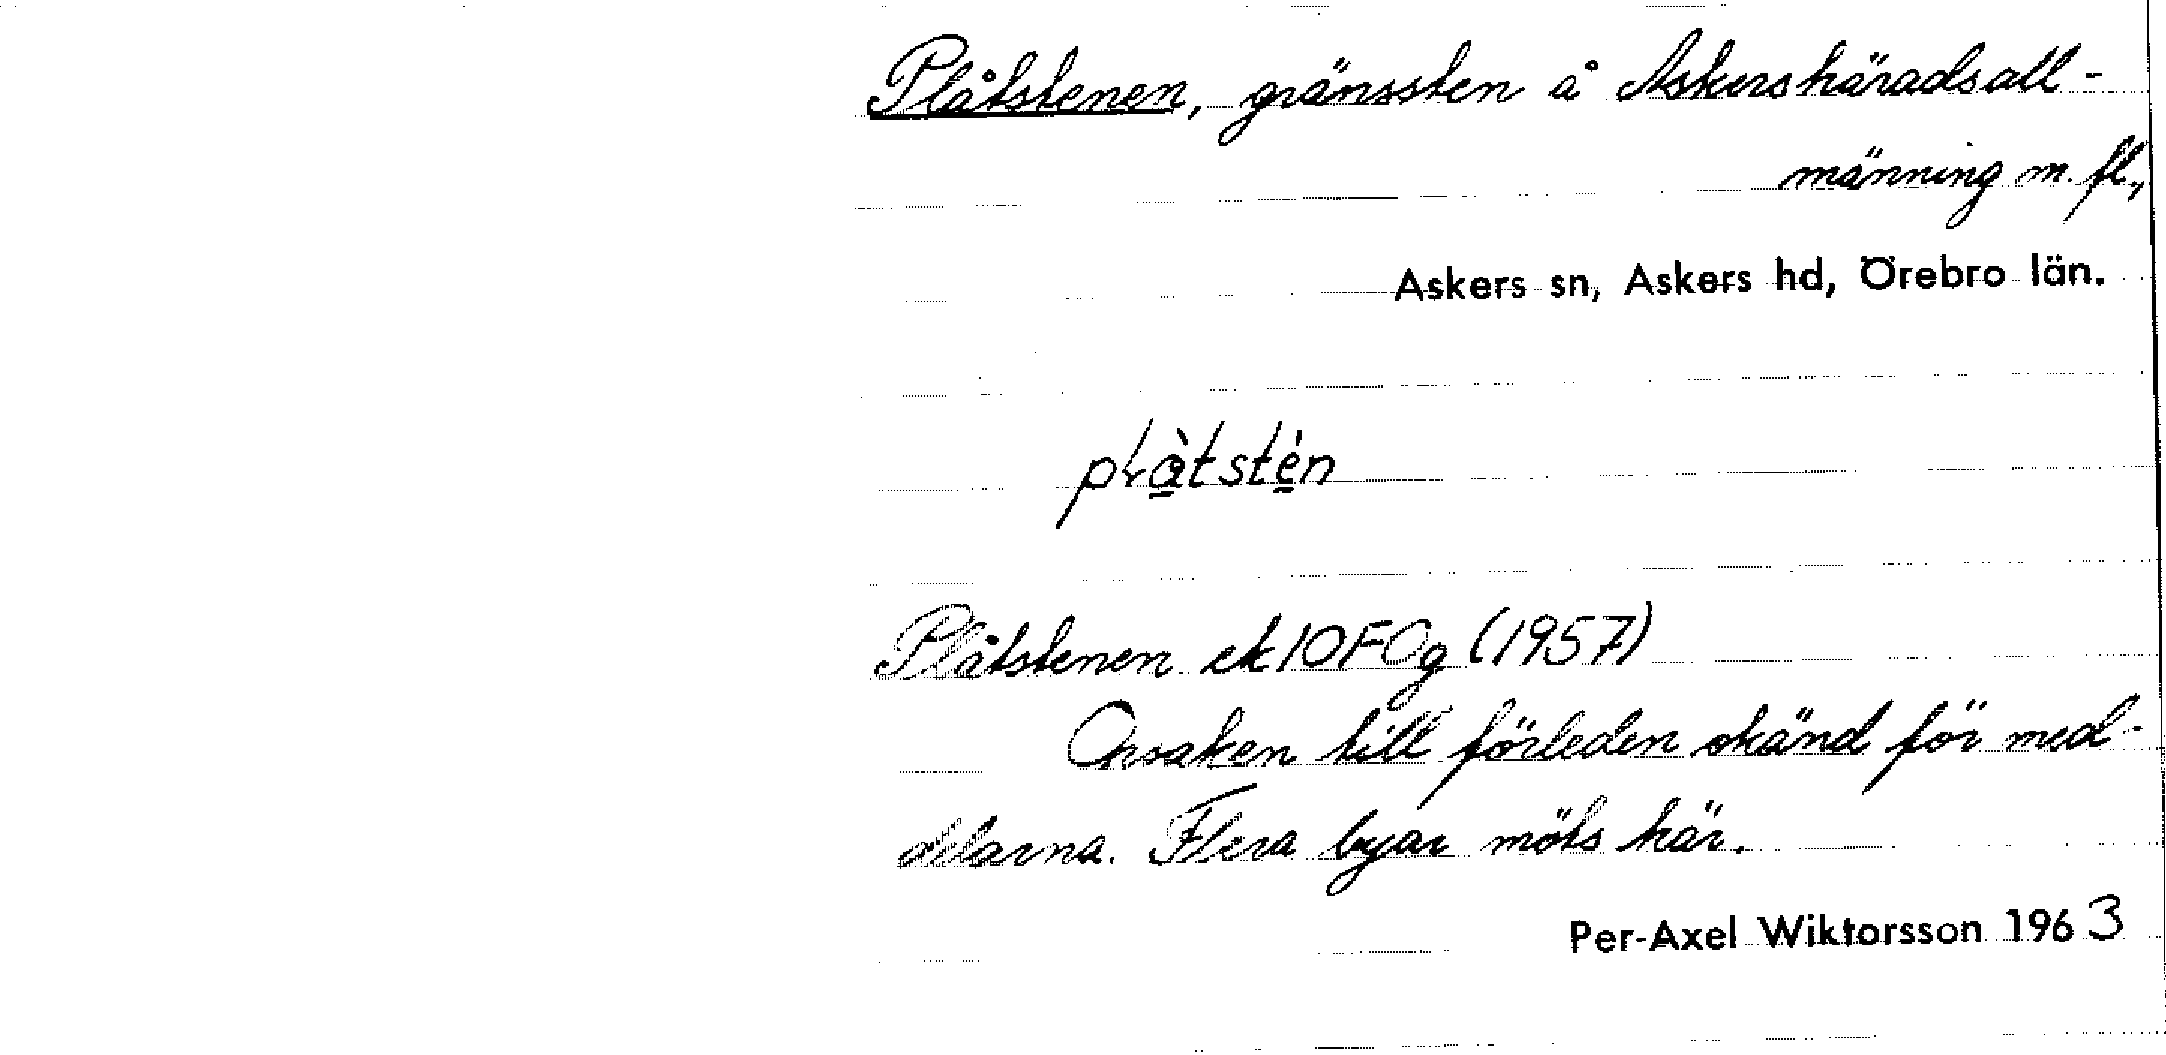 Plåtstenen, gränssten å Askers häradsall-
männing m. fl.,
Askers sn, Askers hd, Örebro län.
Plåtstenen ek 10F0g (1957)
Orsaken till förleden okänd för med-
delarna. Flera byar möts här.
Per-Axel Wiktorsson 1963